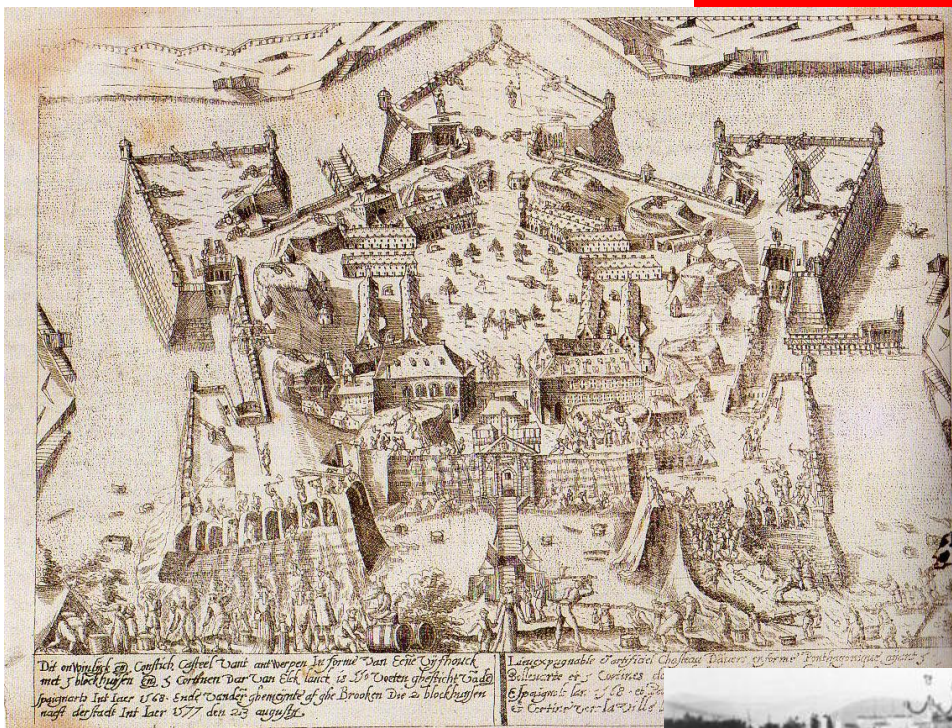 Dit onwinlijck en Constich Casteel Vant antwerpen In forme Van Eene Vijfhouck
met 5 blockhuijsen en 5 Cortinen Dar Van Elck lanck is Voeten ghesticht Vade
spaignorts Int Iaer 1568. Ende Vander ghemeinte af ghe Brooken Die 2 blockhuijsen
naest der stadt Int Iaer 1577 den 23 augusty
Lieu expugnable et artificiel Chasteau Danvers en forme Penthagonique ayant 5
Bollewerte et 5 Curtines
Espaignols lan. 1568. et
et Cortine ver la Ville